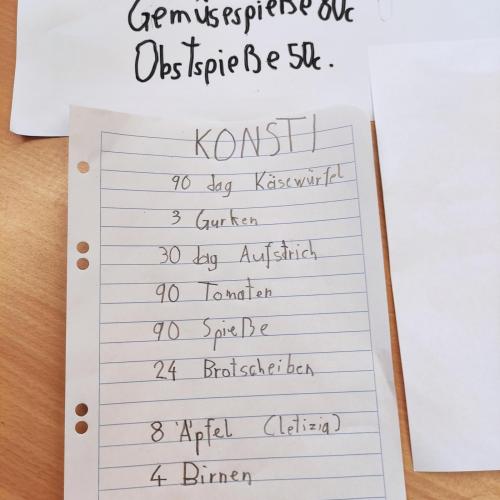 Gemüsespieße 80c
Obstspieße 50c.
KONSTI
90 dag Käsewürfel
3 Gurken
30 dag Aufstrich
90 Tomaten
90 Spieße
24 Brotscheiben
8 Äpfel (letizia)
4 Birnen